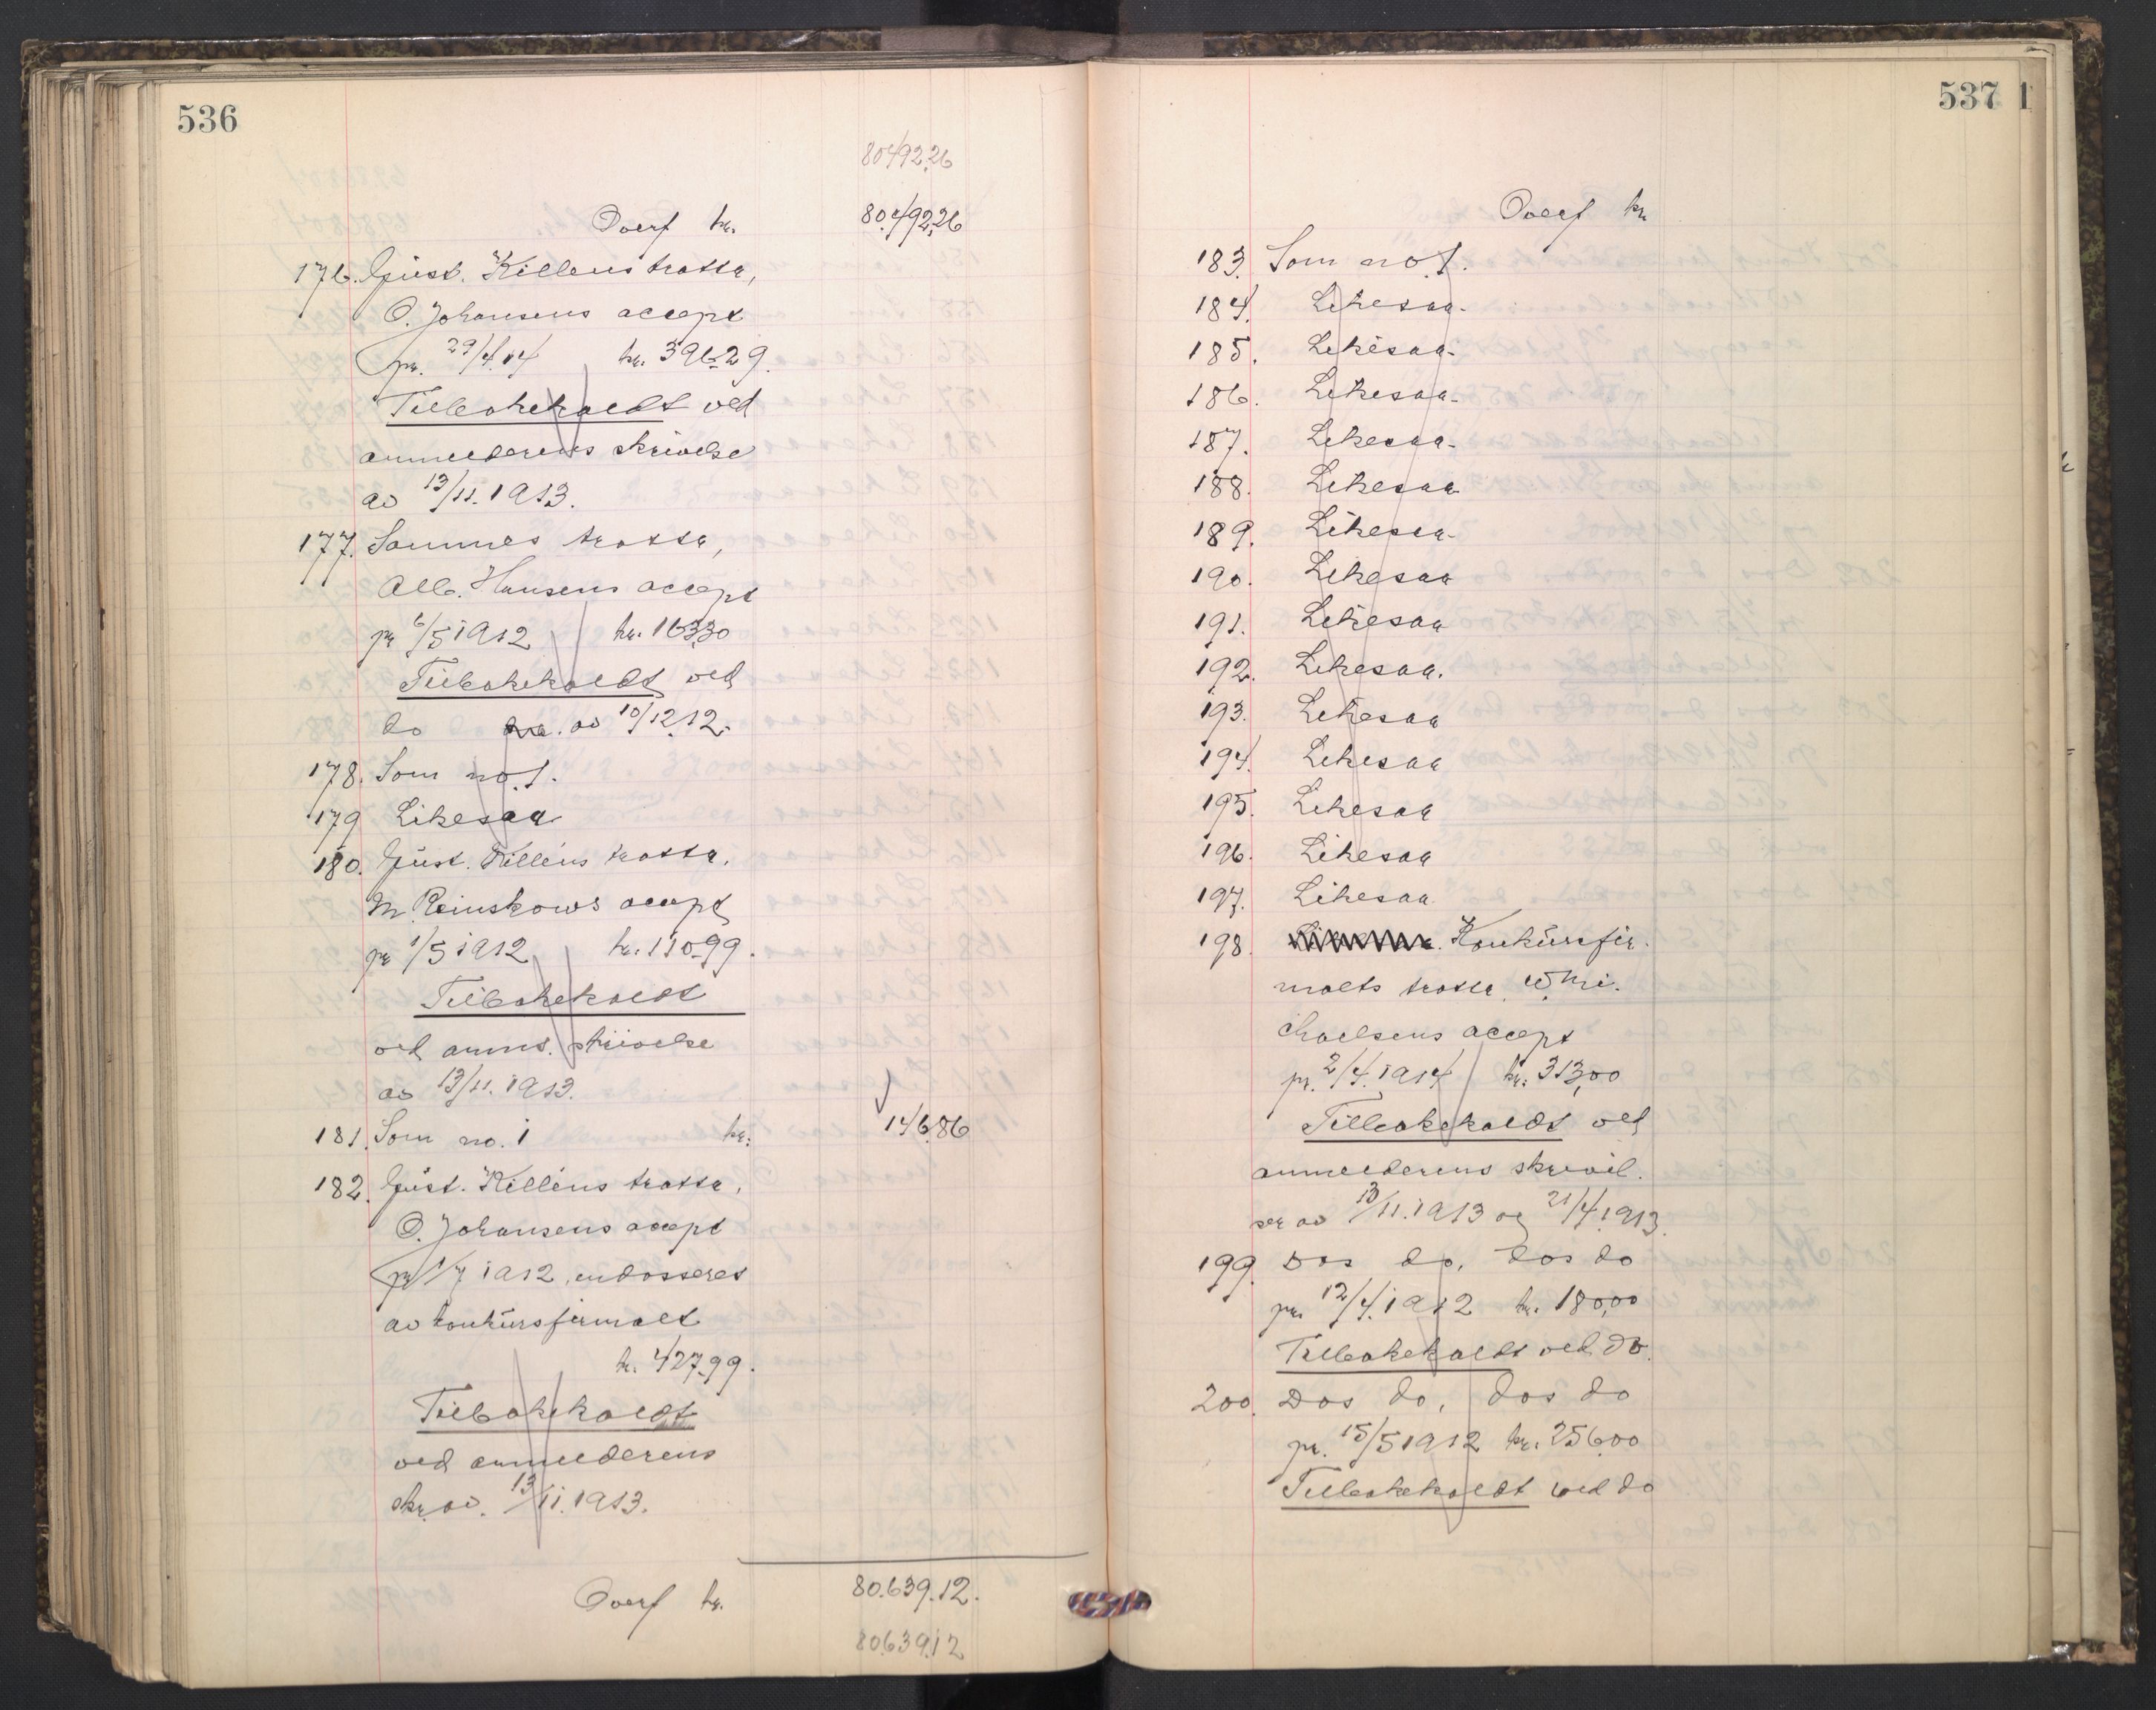 536
80492.26
Overf kr. 80.492,26
176. Gust. Killéns tratta,
O. Johansens accept
pr. 29/4.14 kr. 396.29.
Tilbakekaldt ved
anmelderens skrivelse
av 13/11.1913.
177. Sammes tratta,
Alb. Hansens accept
pr 6/5 1912 kr. 163,30
Tilbakekaldt ved
do av 10/12.12.
178. Som no. 1.
179 Likesaa
180. Gust. Killéns tratta,
M. Reinskows accept
pr 1/5 1912 kr. 110.99.
Tilbakekaldt
ved anms. skrivelse
av 13/11.1913.
181. Som no. 1 kr: 146.86
182. Gust. Killéns tratta,
O. Johansens accept
pr 1/7 1912, endosseret
av konkursfirmaet
kr. 427.99.
Tilbakekaldt
ved anmelderens
skr. av. 13/11.1913.
Overf kr. 80.639.12.
80.639.12
537 1
Overf kr
183. Som no 1.
184. Likesaa.
185. Likesaa.
186. Likesaa.
187. Likesaa.
188. Likesaa
189. Likesaa.
190. Likesaa
191. Likesaa
192. Likesaa.
193. Likesaa
194. Likesaa
195. Likesaa
196. Likesaa
197. Likesaa
198. Konkursfir-
maets tratta, W. Mi-
chaelsens accept
pr. 2/4.1914 kr: 313,00
Tilbakekaldt ved
anmelderens skrivel-
ser av 13/11.1913 og 21/4.1913.
199. Dos do, dos do
pr. 12/4.1912 kr. 180,00
Tilbakekaldt ved do.
200. Dos do, dos do
pr. 15/5 1912 kr. 256.00
Tilbakekaldt ved do